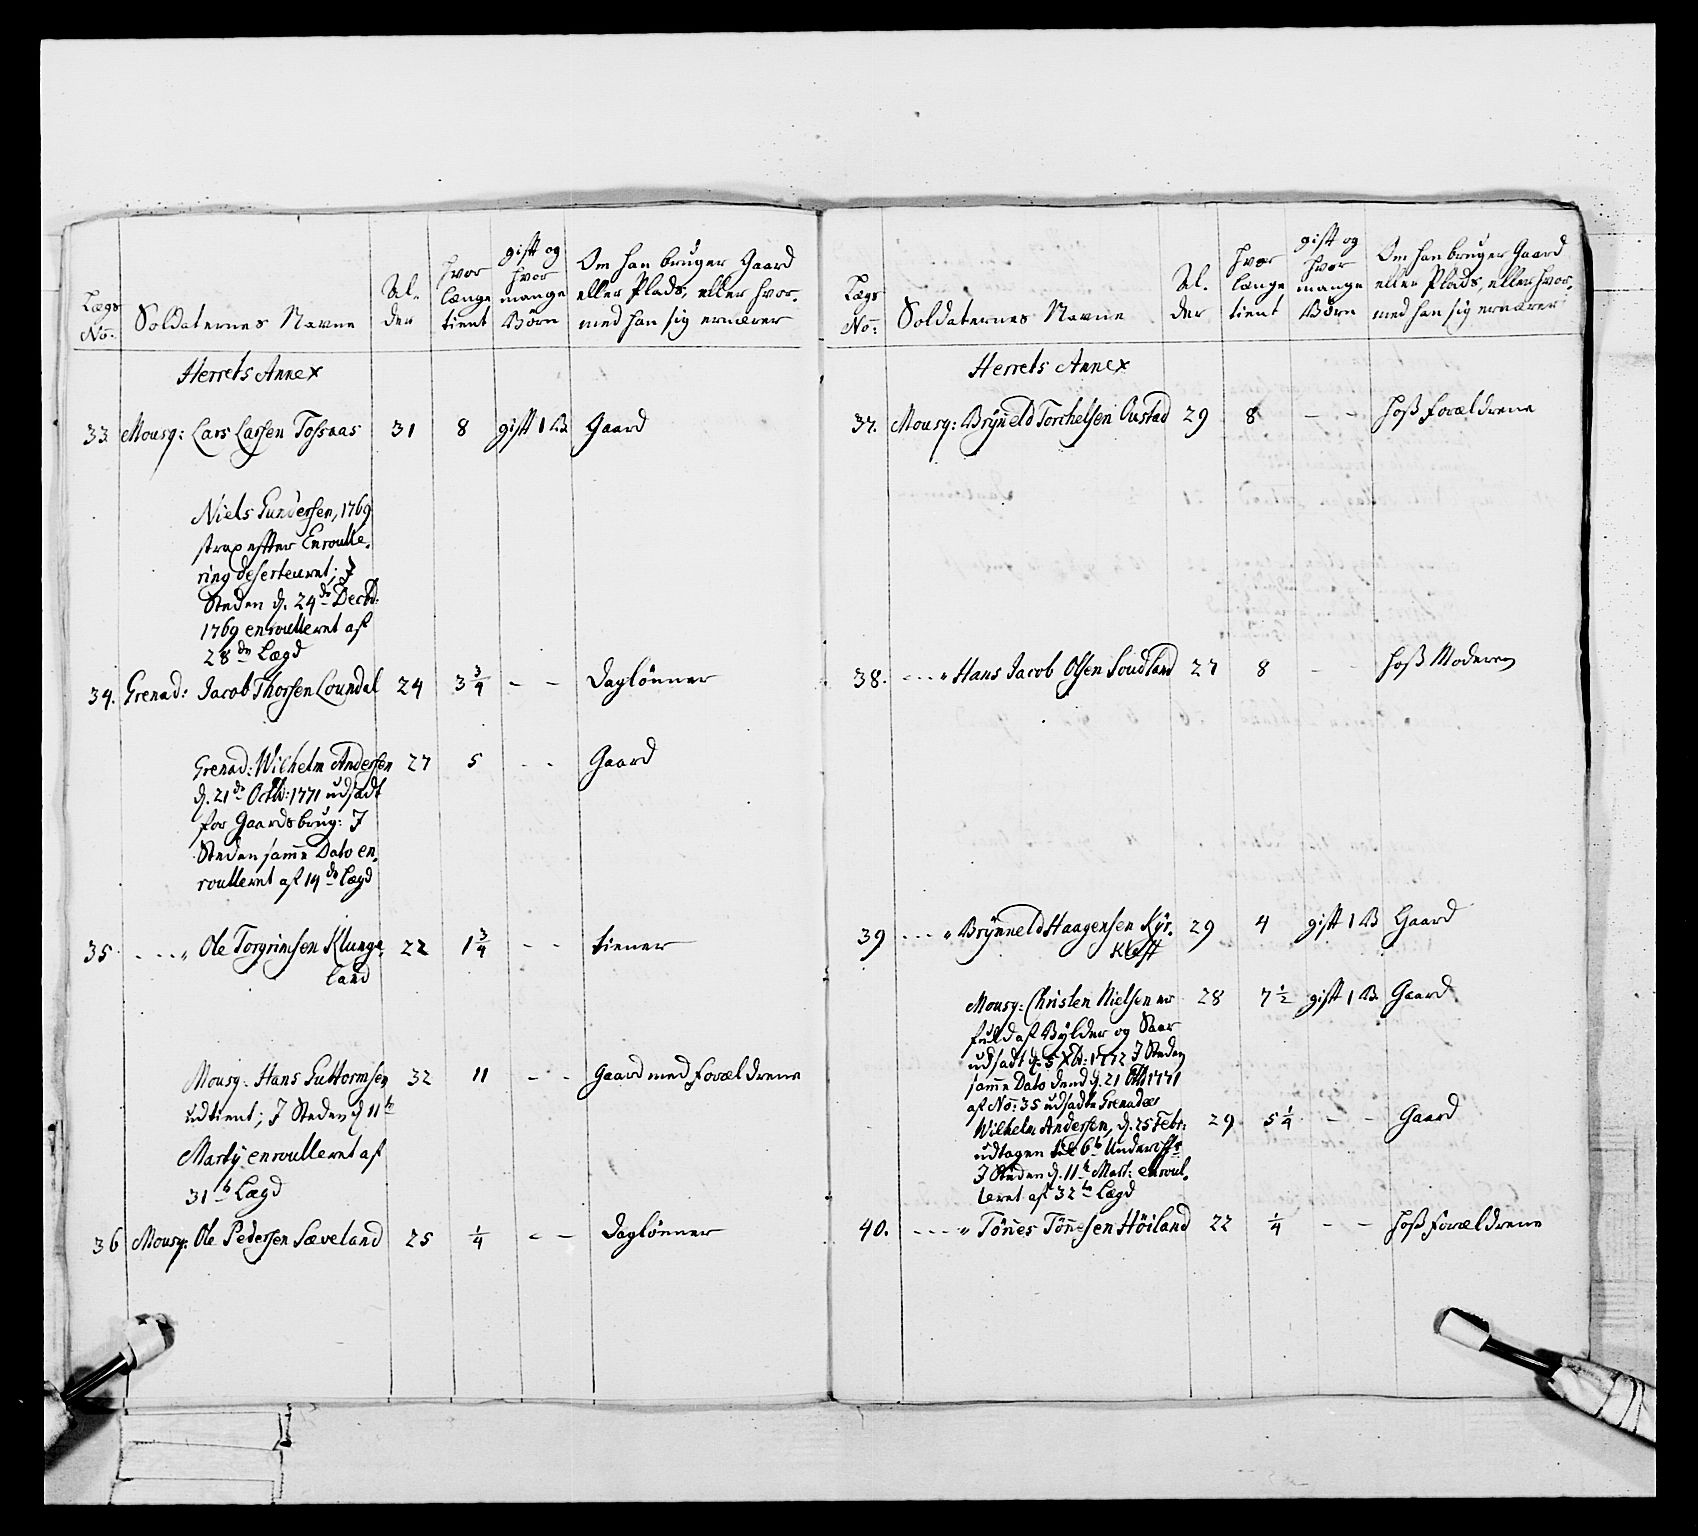 Lægs No: Soldaternes Navne Al- der hvor længe tient gift og hvor mange Börn Om han bruger Gaard eller Plads, eller hvor- med han sig ernærer
Herrets Annex
33. Mousq: Lars Larsen Tosnaas 31 8 gift 1 B. Gaard
Niels Gundersen, 1769
strax effter Enroulle-
ring deserteuret; J
Steden d. 24de Decbr:
1769 enroulleret af
28de Lægd
34. Grenad: Jacob Thorsen Loundal 24 3 3/4 - - Daglönner
Grenad: Wilhelm Andersen 27 5 - - Gaard
d. 21de Octbr: 1771 udsadt
for Gaardsbrug: J
Steden samme Dato en-
roulleret af 14de Lægd
35 - - - " Ole Torgrimsen Klunge- 22 1 3/4 - - tiener
land
Mousq: Hans Guttormsen 32 11 - - Gaard med Forældrene
udtient; J Steden d 11te
Marty enroulleret af
31te Lægd
36 Mousq: Ole Pedersen Sæveland 25 1/4 - - Daglönner
Lægs No: Soldaternes Navne Al- der hvor længe tient gift og hvor mange Börn Om han bruger Gaard eller Plads, eller hvor- med han sig ernærer
Herrets Annex
37. Mousq: Brynneld Torchelsen Oustad 29 8 - - hoß Forældrene
38. - - - " Hans Jacob Olsen Soudland 27 8 - - hoß Moderen
39 - - - " Brynneld Haagensen Kyr- 29 4 gift 1 B Gaard
kleft
Mousq: Christen Nielsen er 28 7 1/2 gift 1 B. Gaard
fuld af Bylder og Saar
udsadt d. 5 1772 J Steden
samme Dato dend d. 21 1771
af No: 35 udsadte Grenadeer
Wilhelm Andersen, d. 25 Febr: 29 5 1/4 - - Gaard
udtagen til 6te Underoffr
J Steden d. 11te Mart: enroul-
leret af 32te Lægd
40. - - - " Tönnes Tönnesen Höiland 22 1/4 - - hoß Forældrene